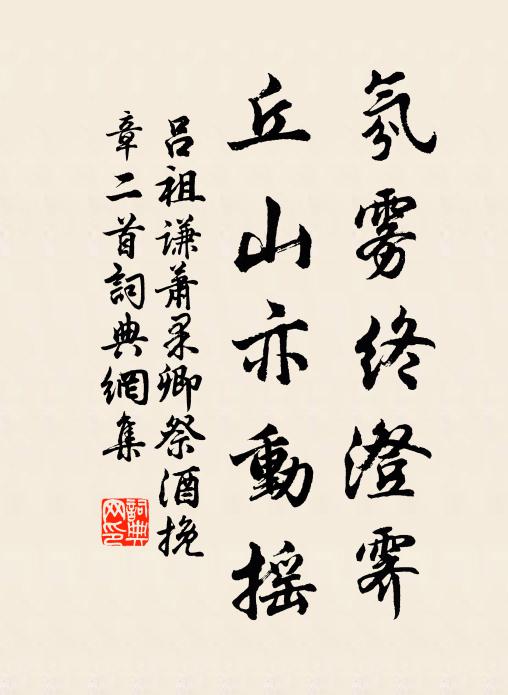 氛雾终澄霁
丘山亦動摇
吕祖谦萧果卿祭酒挽
章二首詞典網集
詞典网印